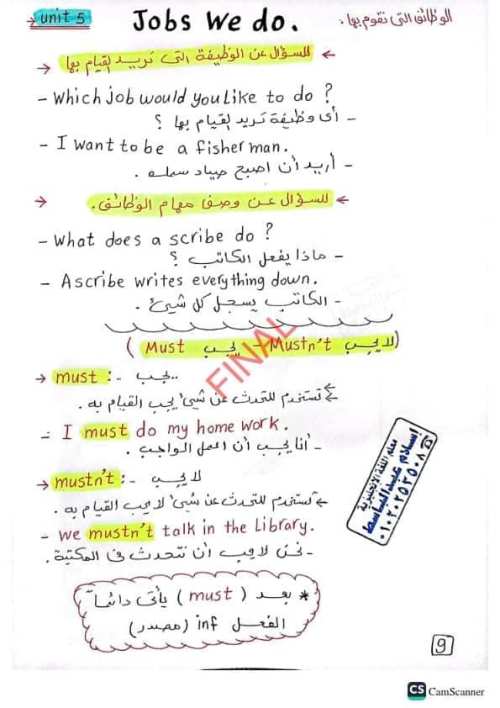 unit 5 Jobs We do. الوظائف التى نقوم بها.
للسؤال عن الوظيفة التى تريد لقيام بها
- Which job would you Like to do ?
- أى وظيفة تريد لقيام بها ؟
- I want to be a fisher man.
- أريد أن اصبح صياد سمك.
للسؤال عن وصف مهام الوظائف.
- What does a scribe do ?
- ماذا يفعل الكاتب ؟
- A scribe writes everything down.
- الكاتب يسجل كل شيئ.
( Must يجب - Mustn't لا يجب)
must :- يجب..
تستخدم للتحدث عن شيئ يجب القيام به.
- I must do my home work.
- أنا يجب أن اعمل الواجب.
mustn't :- لا يجب
تستخدم للتحدث عن شيئ لا يجب القيام به.
- we mustn't talk in the Library.
- نحن لا يجب أن نتحدث فى المكتبة.
* بعد ( must ) يأتى دائماً
الفعل inf (مصدر)
FINAL
معلم اللغة الانجليزية
01020252508
9
CS CamScanner